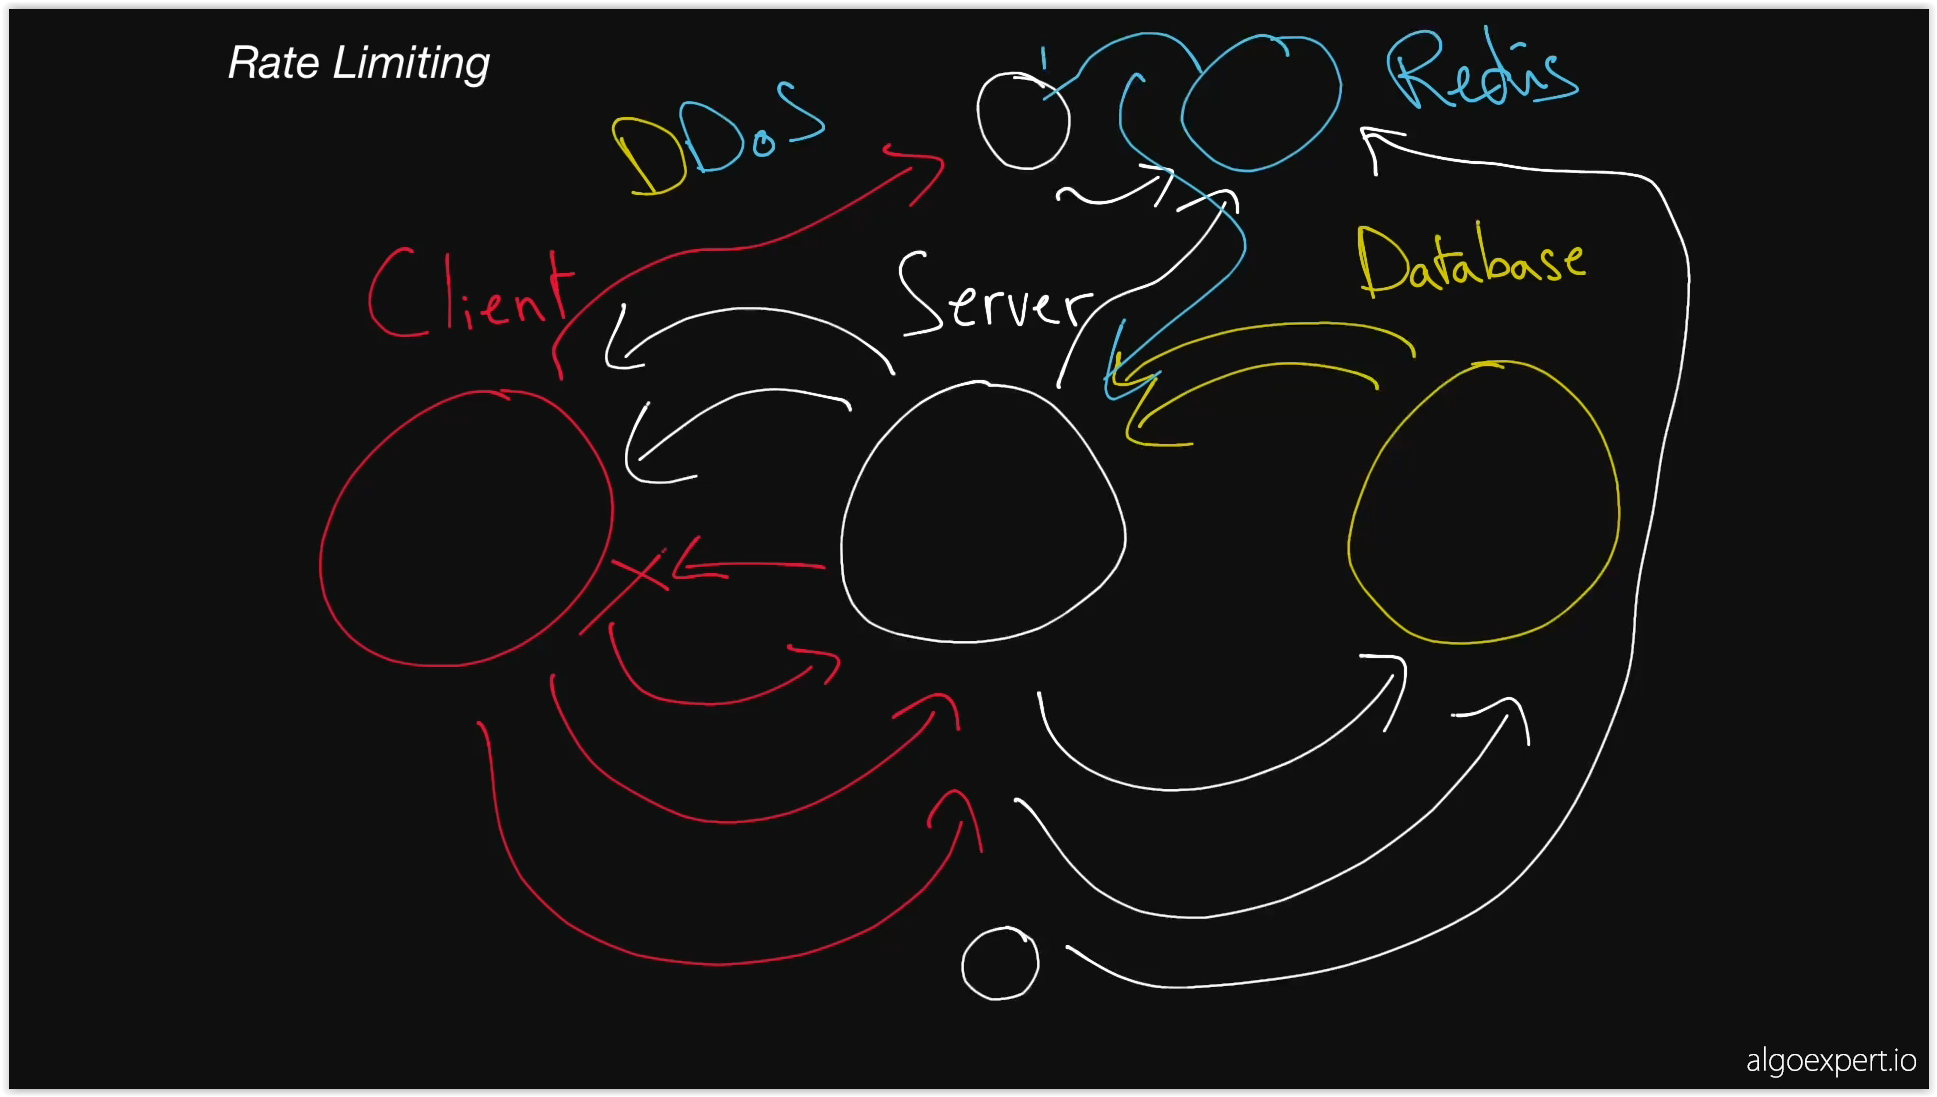 Rate Limiting
Redis
DDoS
Client
Server
Database
algoexpert.io